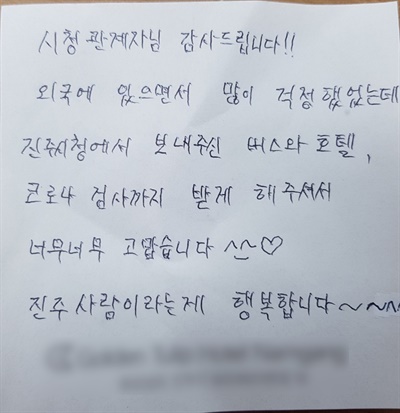 시청 관계자님 감사드립니다!!
외국에 있으면서 많이 걱정했었는데
진주시청에서 보내주신 버스와 호텔,
코로나 검사까지 받게 해주셔서
너무너무 고맙습니다 ^^♡
진주 사람이라는게 행복합니다~~^^